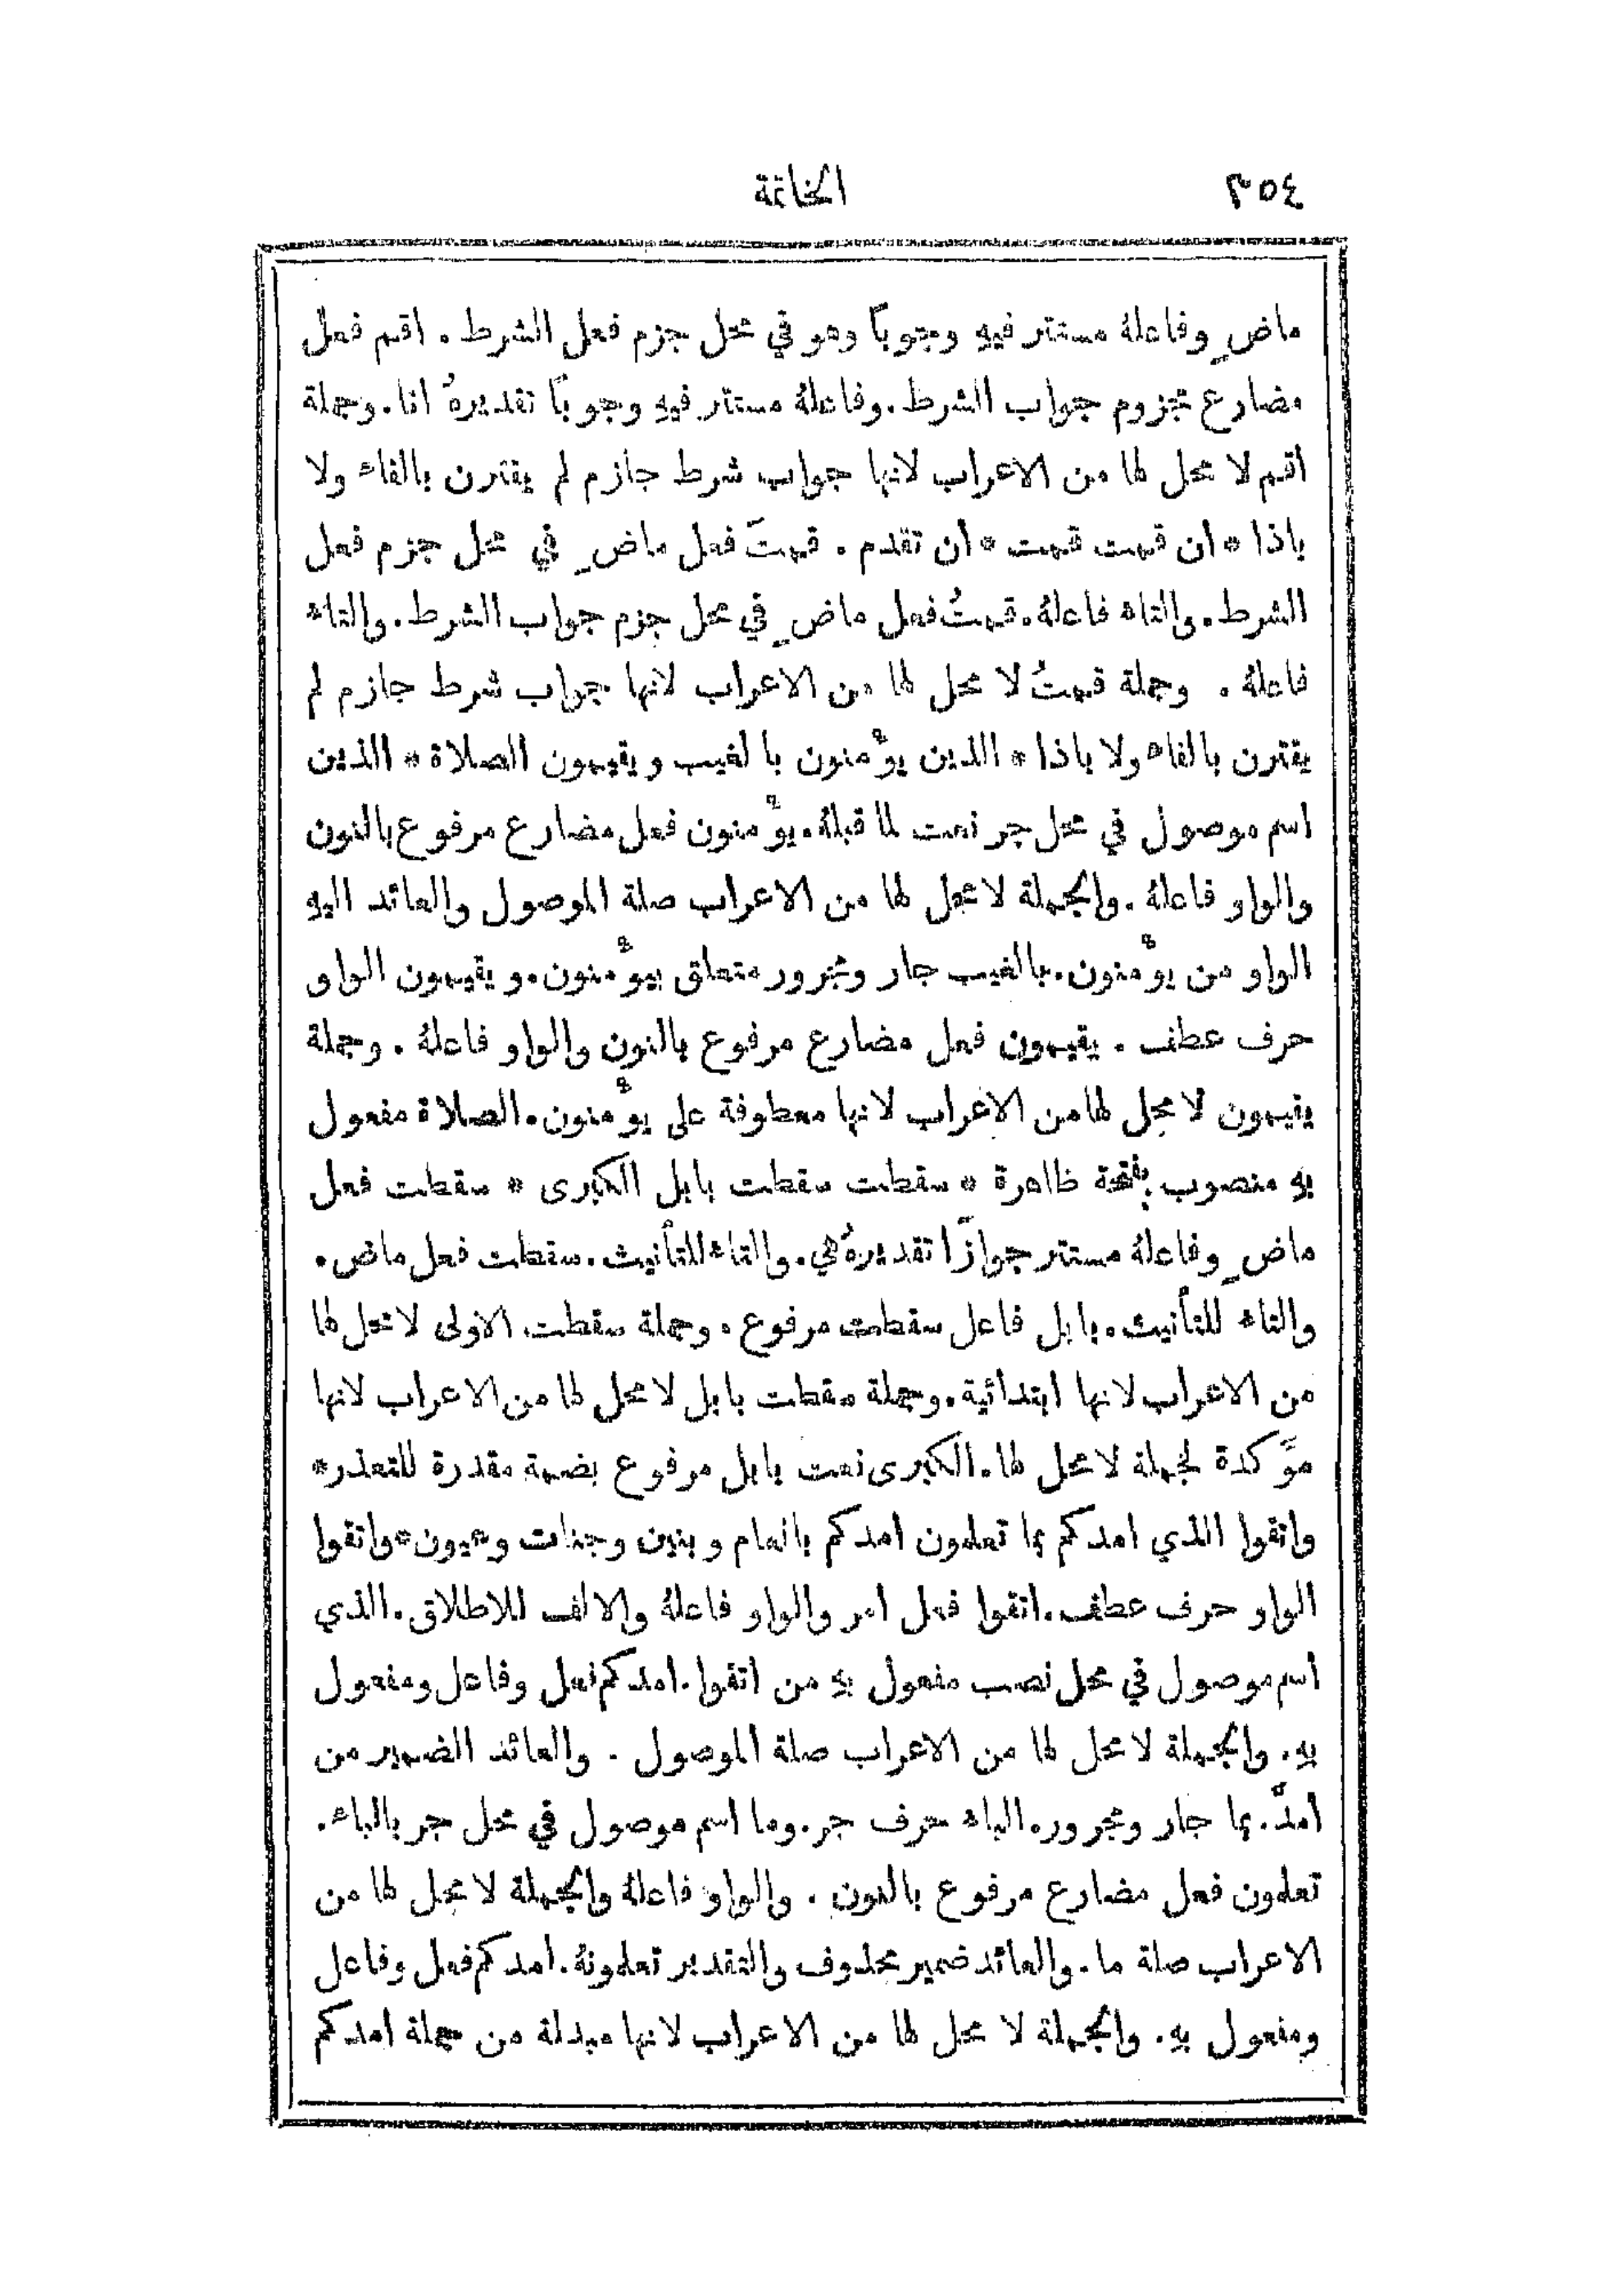 ٣٥٤ الخاتمة
ماضٍ وفاعلهُ مستتر فيهِ وجوباً وهو في محل جزم فعل الشرط. اقم فعل
مضارع مجزوم جواب الشرط. وفاعلهُ مستتر فيهِ وجوباً تقديرهُ انا. وجملة
اقم لا محل لها من الاعراب لانها جواب شرط جازم لم يقترن بالفاء ولا
باذا * ان قمت قمت * ان تقدم. قمتَ فعل ماضٍ في محل جزم فعل
الشرط. والتاء فاعلهُ. قمتُ فعل ماضٍ في محل جزم جواب الشرط. والتاء
فاعلهُ. وجملة قمتُ لا محل لها من الاعراب لانها جواب شرط جازم لم
يقترن بالفاء ولا باذا * الذين يؤْمنون بالغيب ويقيمون الصلاة * الذين
اسم موصول في محل جر نعت لما قبلهُ. يؤْمنون فعل مضارع مرفوع بالنون
والواو فاعلهُ. والجملة لا محل لها من الاعراب صلة الموصول والعائد اليهِ
الواو من يؤْمنون. بالغيب جار ومجرور متعلق بيؤْمنون. ويقيمون الواو
حرف عطف. يقيمون فعل مضارع مرفوع بالنون والواو فاعلهُ. وجملة
يقيمون لا محل لها من الاعراب لانها معطوفة على يؤْمنون. الصلاة مفعول
بهِ منصوب بفتحة ظاهرة * سقطت سقطت بابل الكبرى * سقطت فعل
ماضٍ وفاعلهُ مستتر جوازًا تقديرهُ هي. والتاء للتأنيث. سقطت فعل ماض.
والتاء للتأنيث. بابل فاعل سقطت مرفوع. وجملة سقطت الاولى لا محل لها
من الاعراب لانها ابتدائية. وجملة سقطت بابل لا محل لها من الاعراب لانها
مؤَكدة لجملة لا محل لها. الكبرى نعت بابل مرفوع بضمة مقدرة للتعذر *
واتقوا الذي امدكم بما تعلمون امدكم بانعام وبنين وجنات وعيون * واتقوا
الواو حرف عطف. اتقوا فعل امر والواو فاعلهُ والالف للاطلاق. الذي
اسم موصول في محل نصب مفعول بهِ من اتقوا. امدكم فعل وفاعل ومفعول
بهِ. والجملة لا محل لها من الاعراب صلة الموصول. والعائد الضمير من
امدَّ. بما جار ومجرور. الباء حرف جر. وما اسم موصول في محل جر بالباء.
تعلمون فعل مضارع مرفوع بالنون. والواو فاعلهُ والجملة لا محل لها من
الاعراب صلة ما. والعائد ضمير محذوف والتقدير تعلمونهُ. امدكم فعل وفاعل
ومفعول بهِ. والجملة لا محل لها من الاعراب لانها مبدلة من جملة امدكم